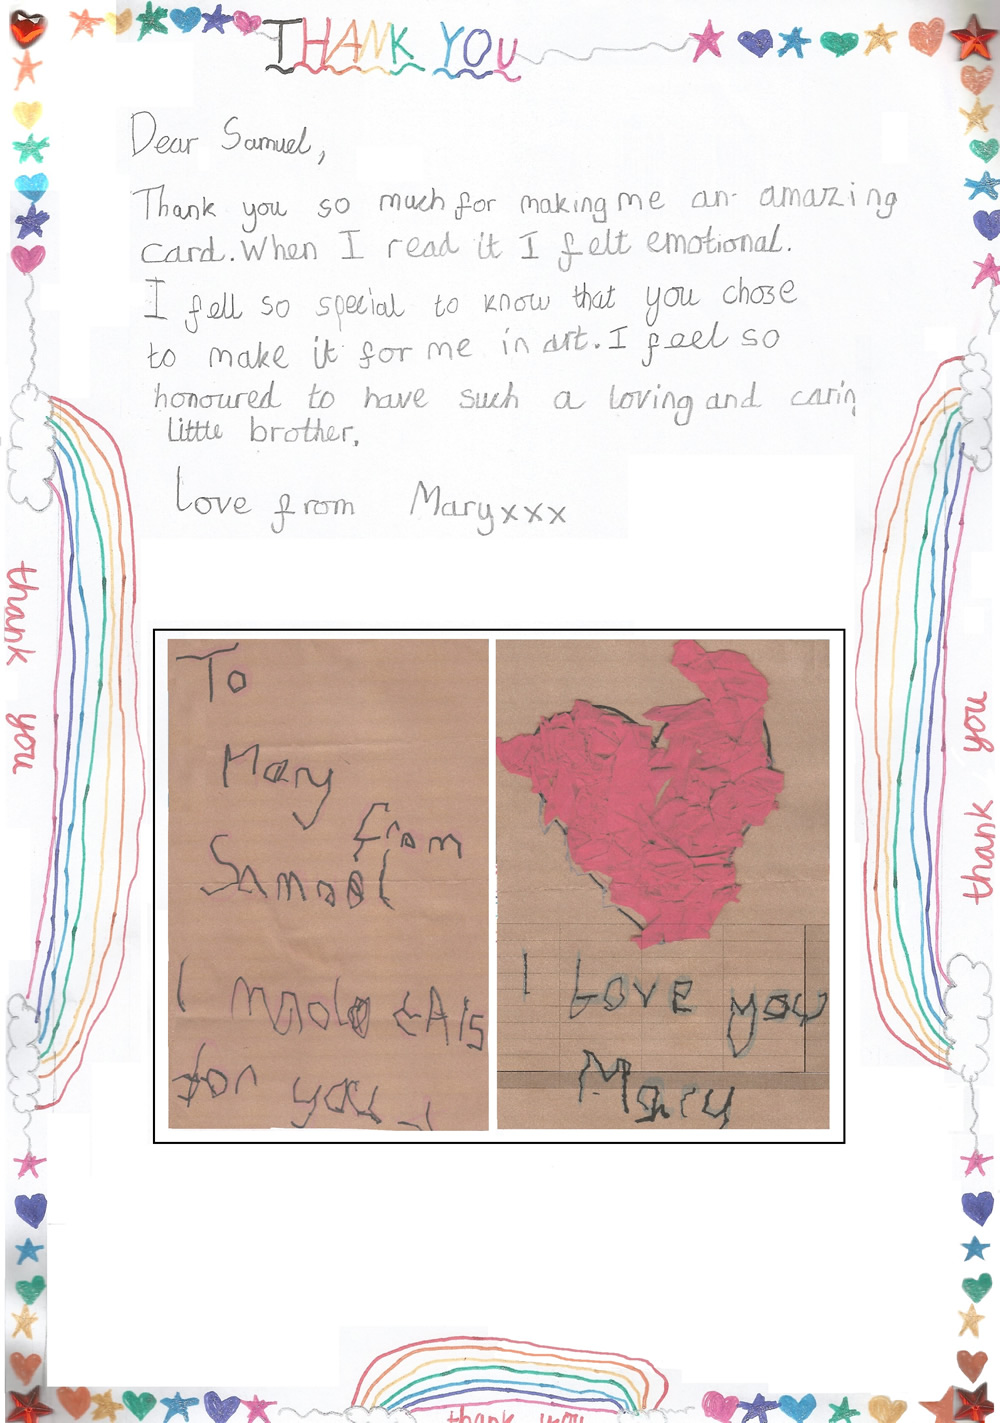 THANK YOU
Dear Samuel,
Thank you so much for making me an amazing
card. When I read it I felt emotional.
I fell so special to know that you chose
to make it for me in art. I feel so
honoured to have such a loving and carin
little brother.
Love from Mary xxx
thank you
thank you
To
Mary
from
Samuel
I made this
for you
I Love you
Mary
thank you